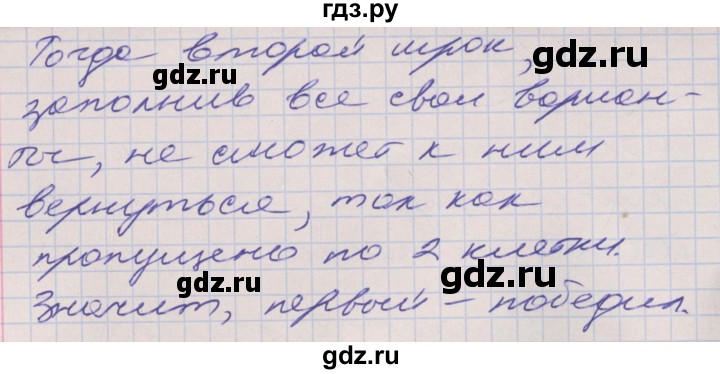 гдз.ру
Тогда второй игрок,
заполнив все свои вариан-
ты, не сможет к ним
вернуться, так как
пропущено по 2 клетки.
Значит, первый – победил.
gdz.ru
gdz.ru
gdz.ru
gdz.ru
gdz.ru
gdz.ru
gdz.ru